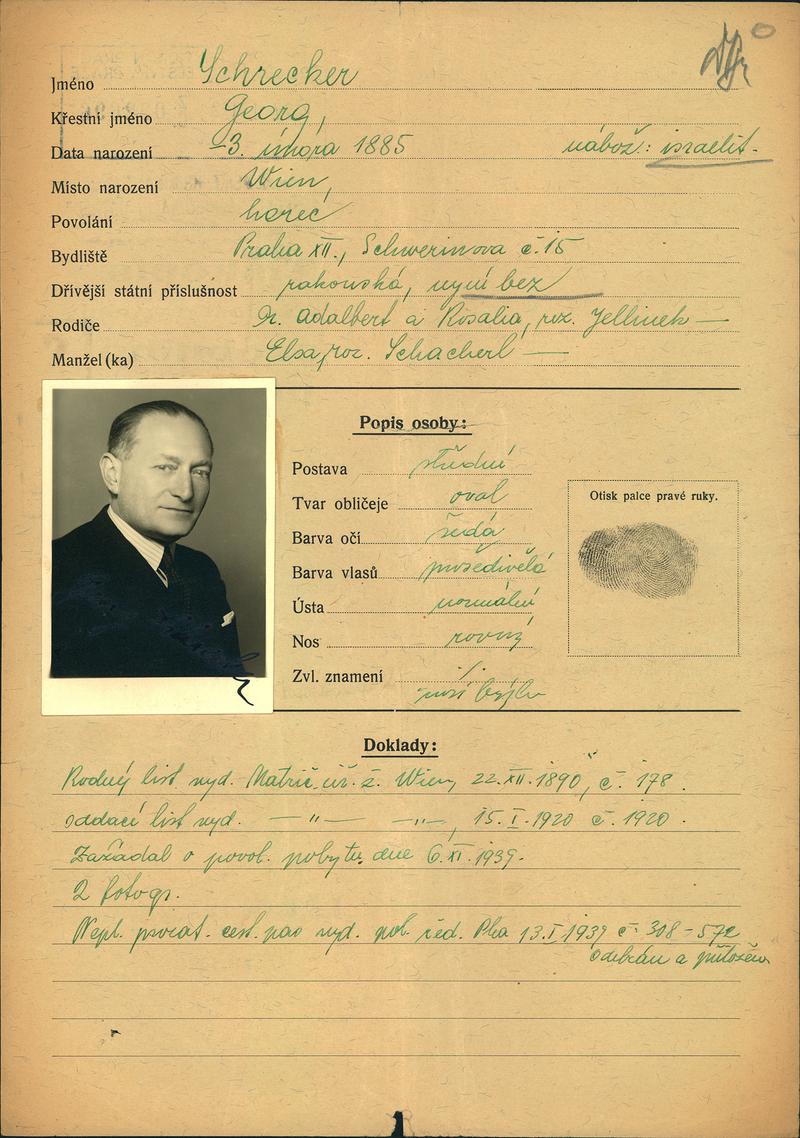 Jméno Schrecker
Křestní jméno Georg,
Data narození -3. února 1885 nábož.: israelit.
Místo narození Wien,
Povolání herec
Bydliště Praha XII., Schwerinova č. 15
Dřívější státní příslušnost rakouská, nyní bez
Rodiče Dr. Adalbert a Rosalia, roz. Jellinek —
Manžel (ka) Elsa, roz. Schacherl —
Popis osoby:
Postava střední
Tvar obličeje oval
Barva očí šedá
Barva vlasů prošedivělá
Ústa normální
Nos rovný
Zvl. znamení ./.
nosí brýle
Otisk palce pravé ruky.
Doklady:
Rodný list vyd. Matrič. úř. ž. Wien, 22.XII.1890, č. 178.
oddací list vyd. — " — — " —, 15.I.1920 č. 1920.
Zažádal o povol. pobytu dne 6.XI.1939.
2 fotogr.
Nepl. provat. cest. pas vyd. pol. řed. Pha 13.I.1939 č. 308-572
odebrán a přiložen